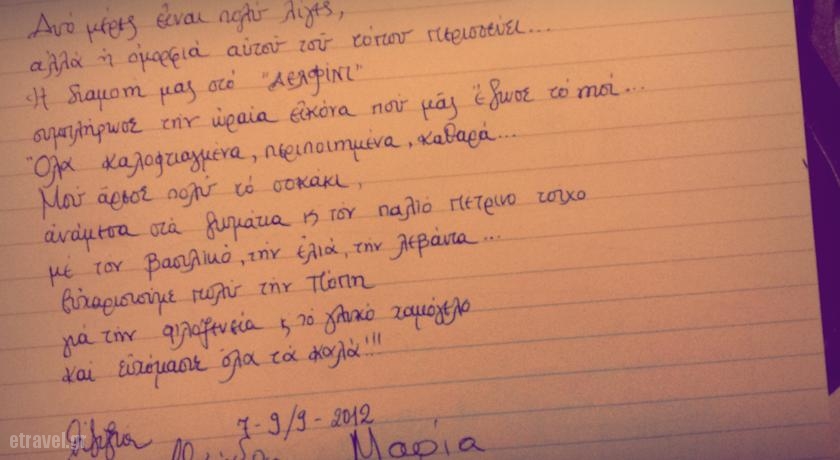 Δυό μέρες εἶναι πολύ λίγες,
ἀλλά ἡ ὀμορφιά αὐτοῦ τοῦ τόπου περισσεύει...
Ἡ διαμονή μας στό "ΔΕΛΦΙΝΙ"
συμπλήρωσε τήν ὡραία εἰκόνα πού μᾶς ἔδωσε τό νησί...
Ὅλα καλοφτιαγμένα, περιποιημένα, καθαρά...
Μοῦ ἄρεσε πολύ τό σοκάκι,
ἀνάμεσα στά δωμάτια ϗ τόν παλιό πέτρινο τοίχο
μέ τόν βασιλικό, τήν ἐλιά, τήν λεβάντα...
Εὐχαριστοῦμε πολύ τήν Πόπη
γιά τήν φιλοξενία ϗ τό γλυκό χαμόγελο
καί εὐχόμαστε ὅλα τά καλά!!!
7-9/9-2012
Μαρία
etravel.gr